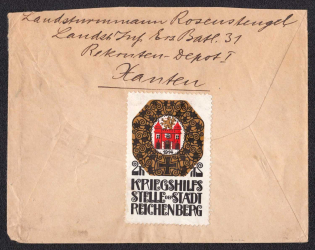 Landsturmmann Rosenstengel
Landst. Inf. Ers. Batl. 31
Rekruten-Depot I
Xanten
1914
KRIEGSHILFS
STELLE DER STADT
REICHENBERG